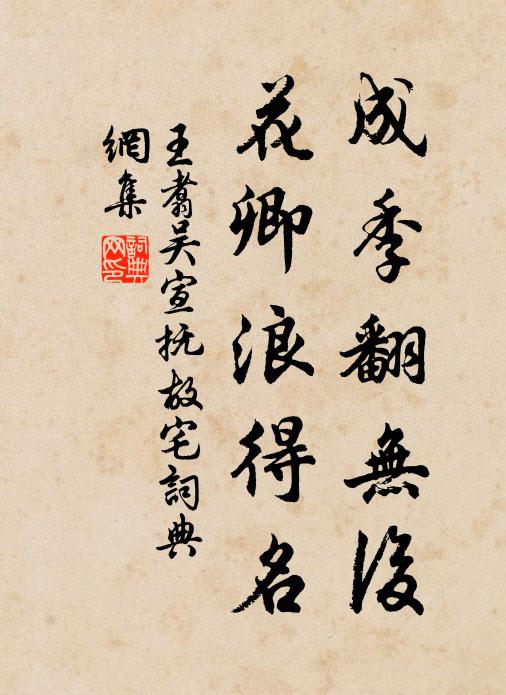 成季翻無後
花卿浪得名
王翥吴宣抚故宅詞典
網集
詞典网印